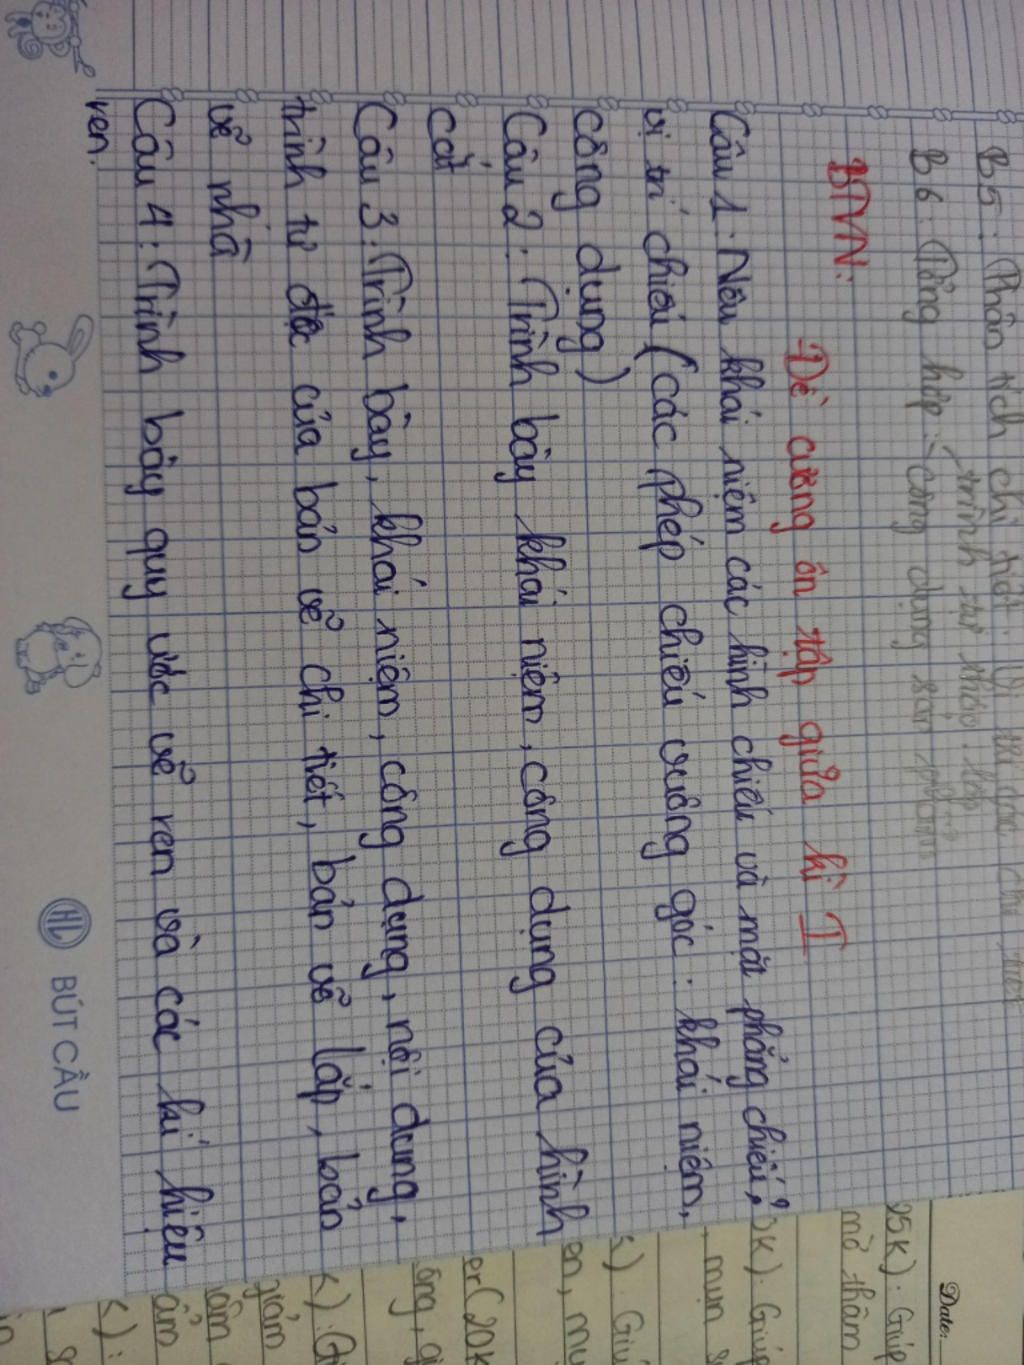 B5: Phân tích chi tiết:
B6: Tổng hợp: - trình tự tháo lắp
- công dụng sản phẩm
BTVN:
Đề cương ôn tập giữa kì I
Câu 1: Nêu khái niệm các hình chiếu và mặt phẳng chiếu,
vị trí chiếu (các phép chiếu vuông góc: khái niệm,
công dụng)
Câu 2: Trình bày khái niệm, công dụng của hình
cắt
Câu 3: Trình bày, khái niệm, công dung, nội dung,
trình tư đọc của bản vẽ chi tiết, bản vẽ lắp, bản
vẽ nhà
Câu 4: Trình bày quy ước vẽ ren và các kí hiệu
ren.
BÚT CẦU
Date:
25K): Giúp
mờ thâm
K): Giúp
, mụn
er(20K